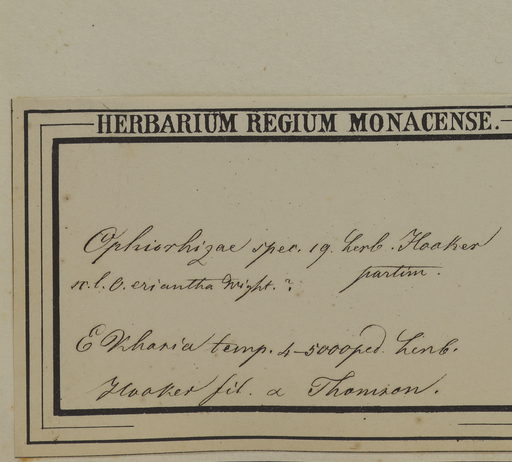 HERBARIUM REGIUM MONACENSE.
Ophiorhizae spec. 19. herb. Hooker
partim.
O. eriantha Wight. ?
E Khasia temp. 4-5000 ped. herb.
Hooker fil. & Thomson.